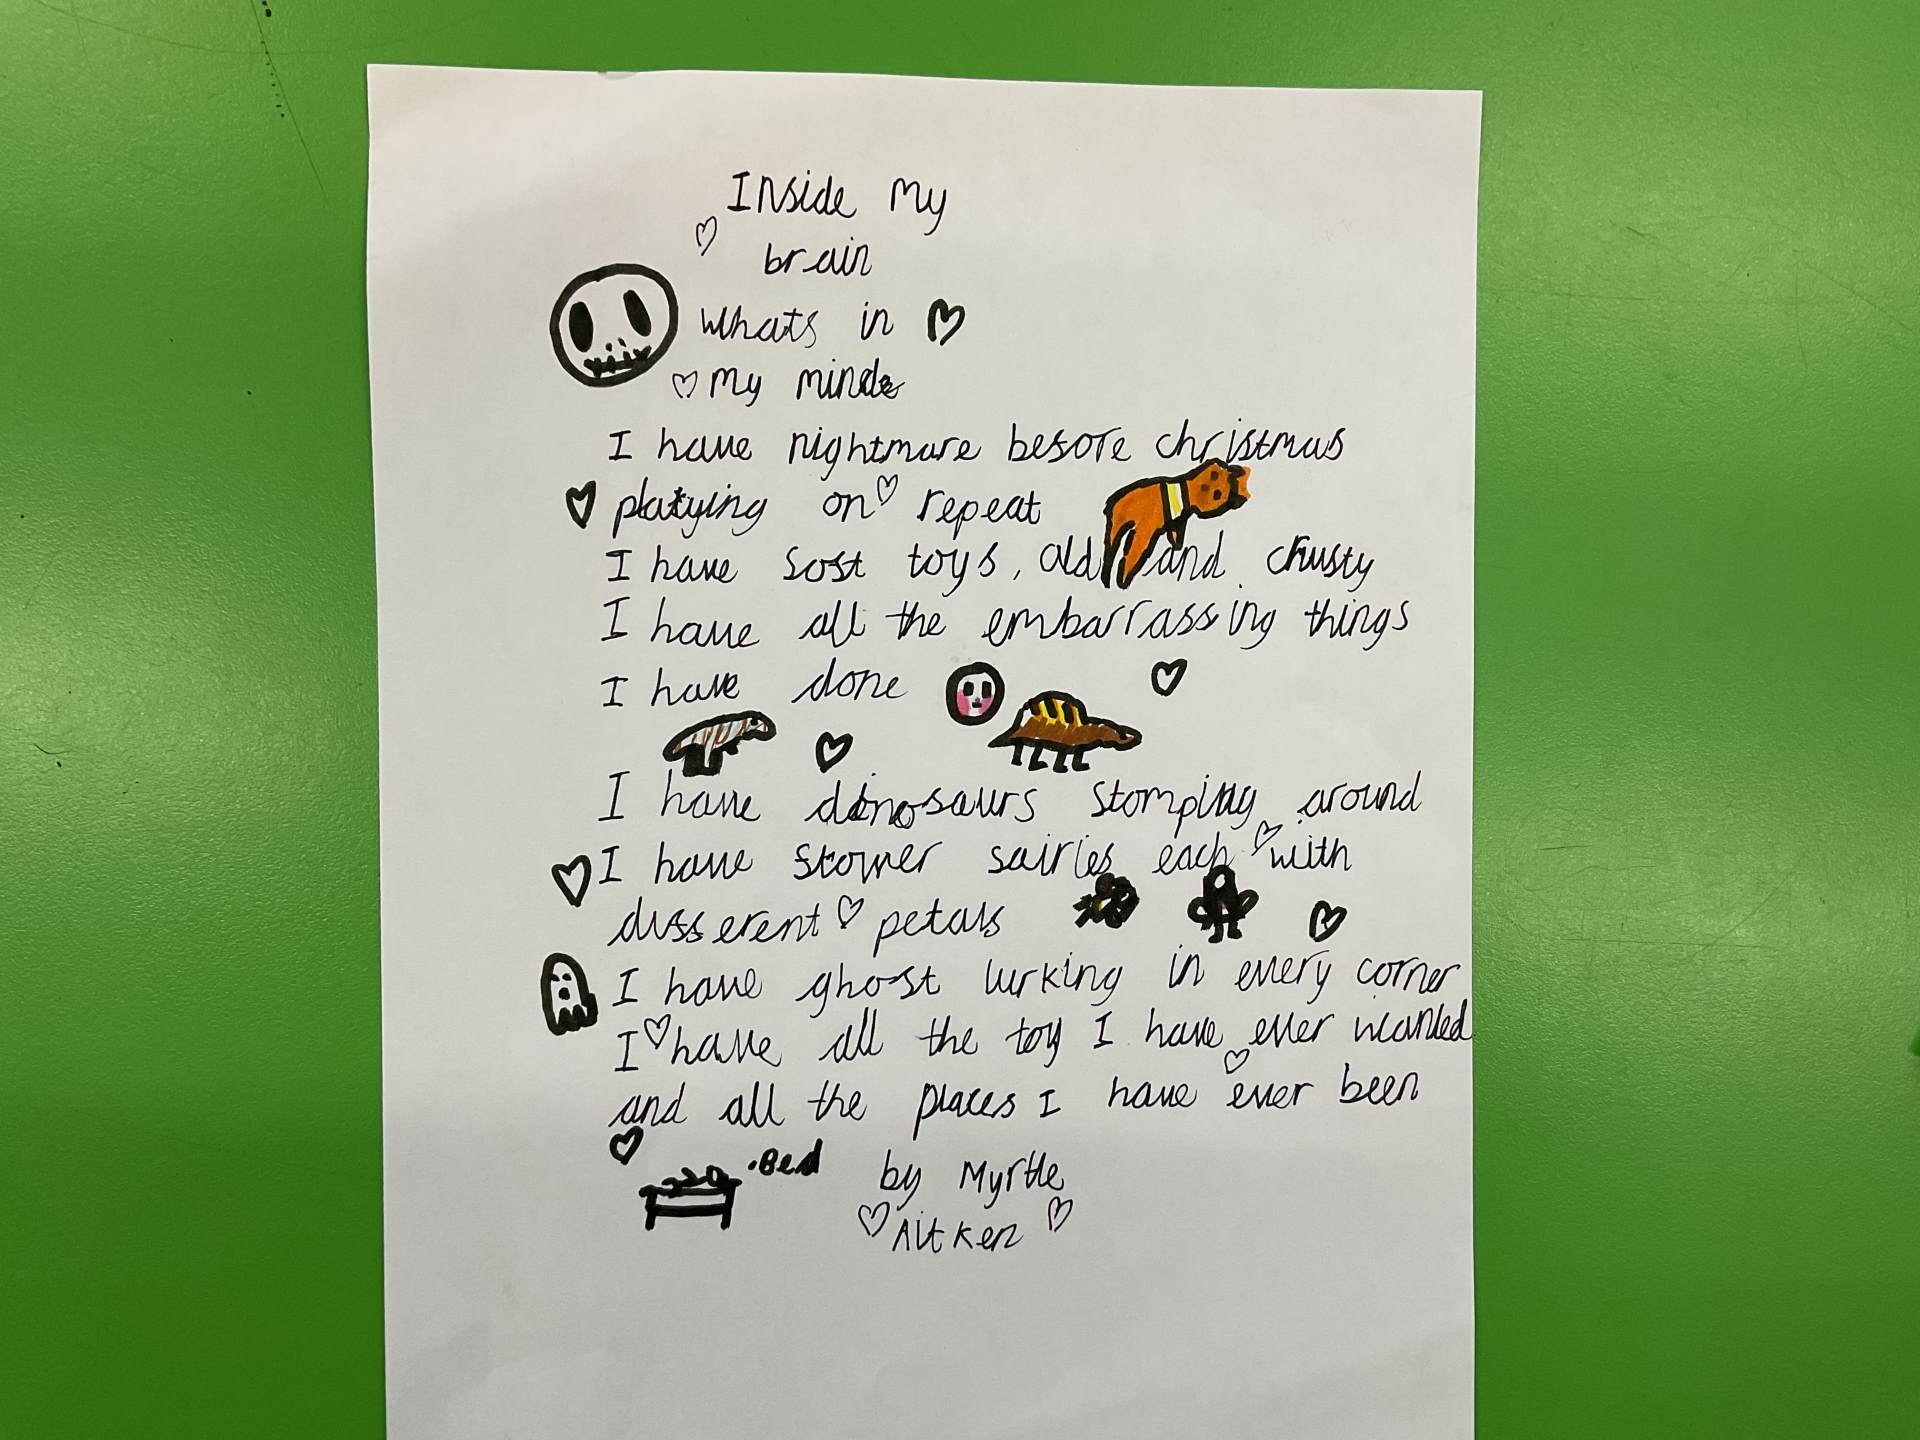 Inside My
brain
Whats in
my minde
I have nightmare before christmas
playing on repeat
I have soft toys, old and crusty
I have all the embarrassing things
I have done
I have dinosaurs stomping around
I have flower fairies each with
different petals
I have ghost lurking in every corner
I have all the toy I have ever wanted
and all the places I have ever been
.Bed
by Myrtle
Aitken